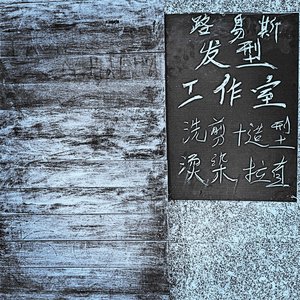 路易斯
发型
工作室
洗剪造型
烫染拉直